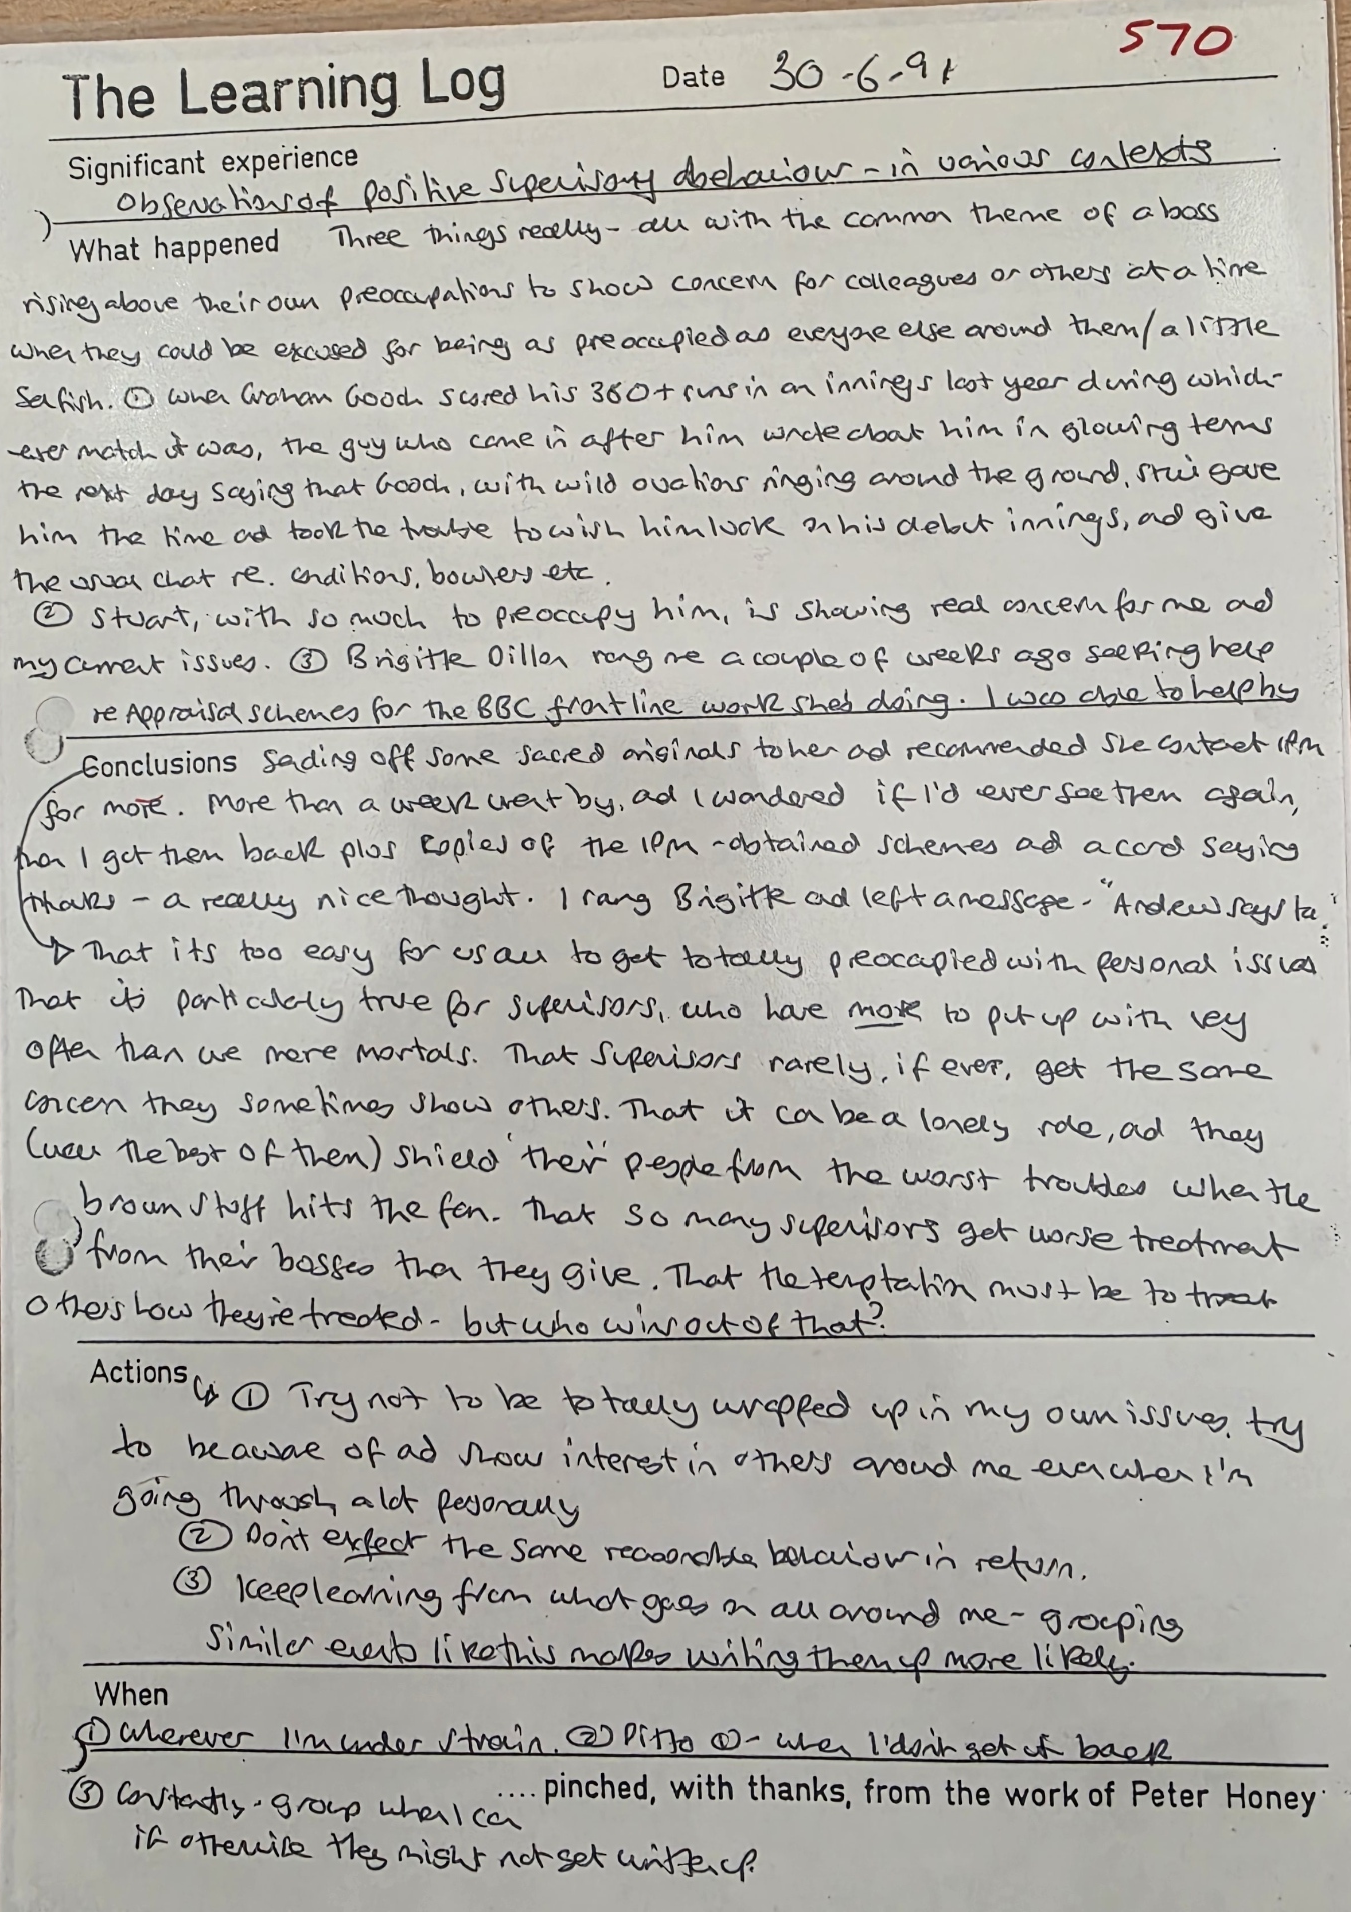 570
The Learning Log Date 30-6-91
Significant experience
Observations of positive supervisory behaviour - in various contexts
What happened Three things really - all with the common theme of a boss
rising above their own preoccupations to show concern for colleagues or others at a time
when they could be excused for being as preoccupied as everyone else around them/a little
selfish. ① When Graham Gooch scored his 360+ runs in an innings last year during which-
ever match it was, the guy who came in after him wrote about him in glowing terms
the next day saying that Gooch, with wild ovations ringing around the ground, still gave
him the time and took the trouble to wish him luck on his debut innings, and give
the usual chat re. conditions, bowlers etc.
② Stuart, with so much to preoccupy him, is showing real concern for me and
my current issues. ③ Brigitte Dillon rang me a couple of weeks ago seeking help
re Appraisal schemes for the BBC front line work she's doing. I was able to help by
Conclusions sending off some sacred originals to her and recommended she contact IPM
for more. More than a week went by, and I wondered if I'd ever see them again,
then I got them back plus copies of the IPM-obtained schemes and a card saying
thanks - a really nice thought. I rang Brigitte and left a message - "Andrew says ta."
That its too easy for us all to get totally preoccupied with personal issues
That its particularly true for supervisors, who have more to put up with very
often than we mere mortals. That supervisors rarely, if ever, get the same
concern they sometimes show others. That it can be a lonely role, and they
(well the best of them) shield 'their' people from the worst troubles when the
brown stuff hits the fan. That so many supervisors get worse treatment
from their bosses than they give. That the temptation must be to treat
others how they're treated - but who wins out of that?
Actions ① Try not to be totally wrapped up in my own issues, try
to be aware of and show interest in others around me even when I'm
going through a lot personally
② Don't expect the same reasonable behaviour in return.
③ Keep learning from what goes on all around me - grouping
similar events like this makes writing them up more likely.
When
① Wherever I'm under strain. ② Ditto ① - when I don't get it back
③ Constantly - group when I can
.... pinched, with thanks, from the work of Peter Honey
if otherwise they might not get written up.